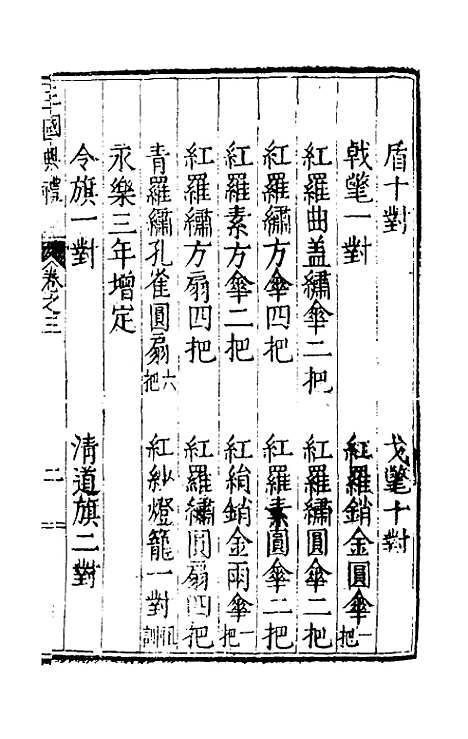 盾十對 戈氅十對
戟氅一對 紅羅銷金圓傘一把
紅羅曲盖繡傘二把 紅羅繡圓傘二把
紅羅繡方傘四把 紅羅素圓傘二把
紅羅素方傘二把 紅絹銷金雨傘一把
紅羅繡方扇四把 紅羅繡圓扇四把
青羅繡孔雀圓扇六把 紅紗燈籠一對
永樂三年增定
令旗一對 清道旗二對
王國典禮 卷之三 二